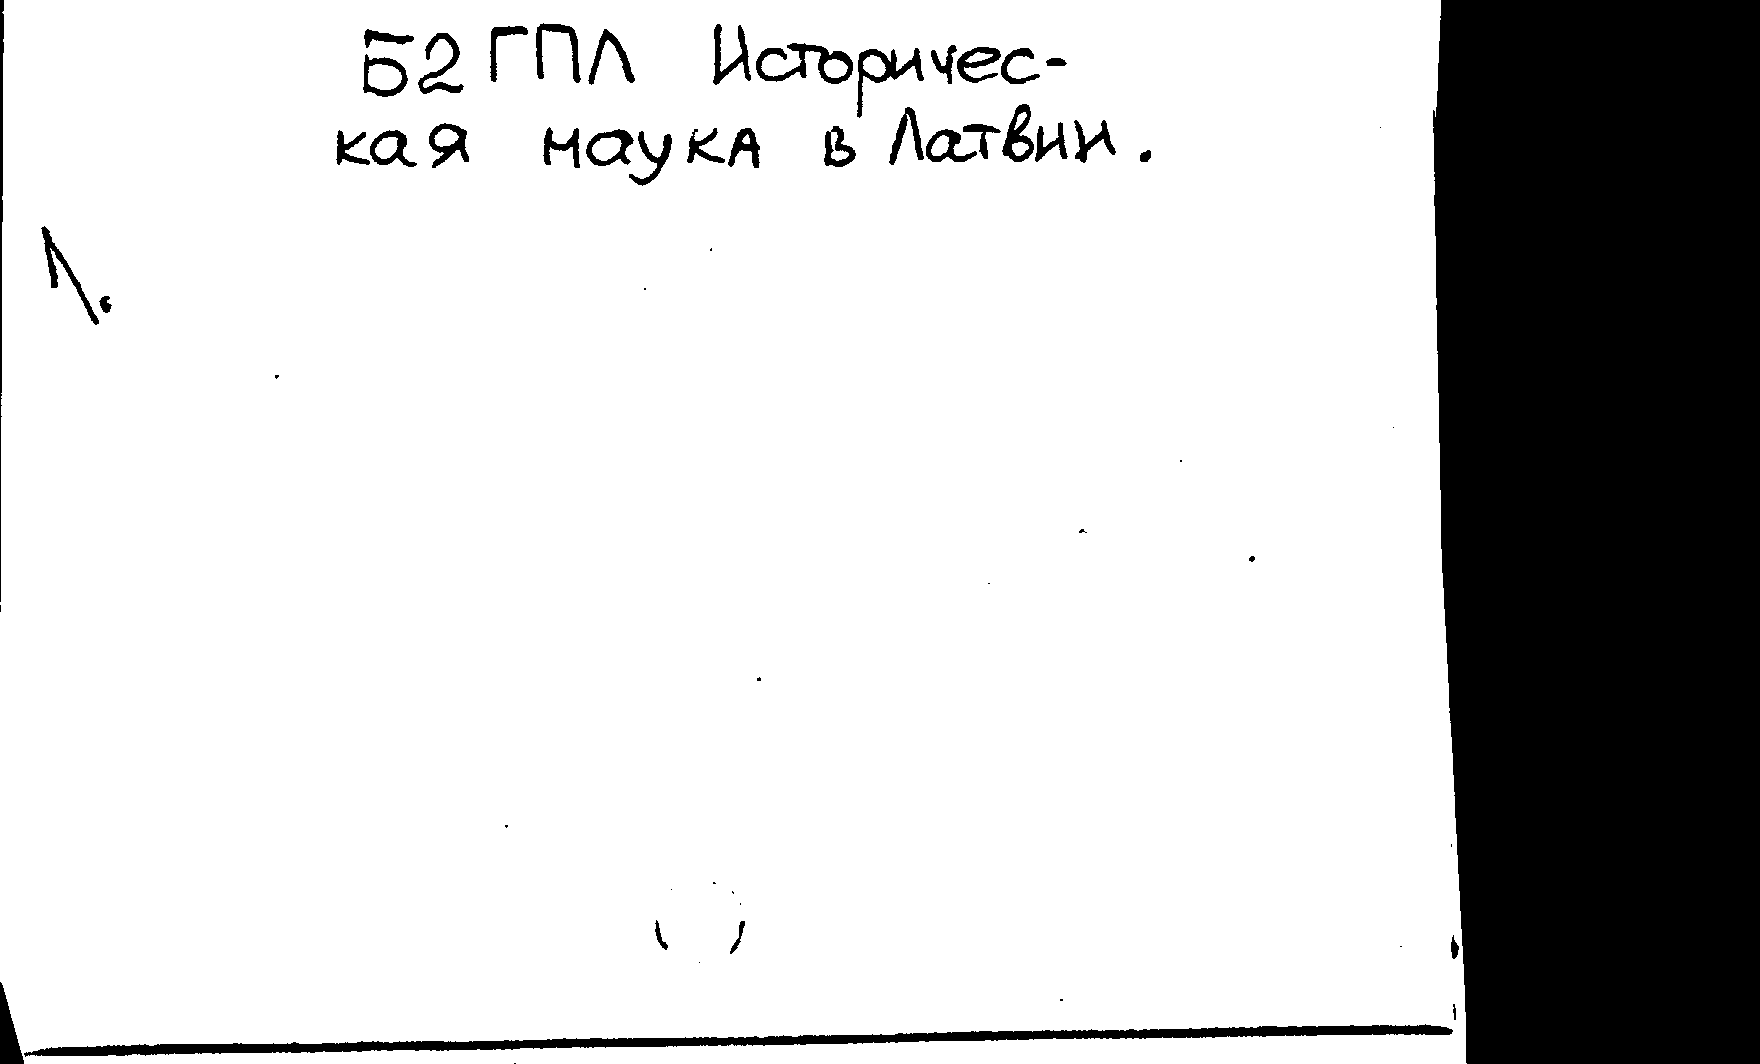 Б2ГПЛ Историчес-
кая наука в Латвии.
1.